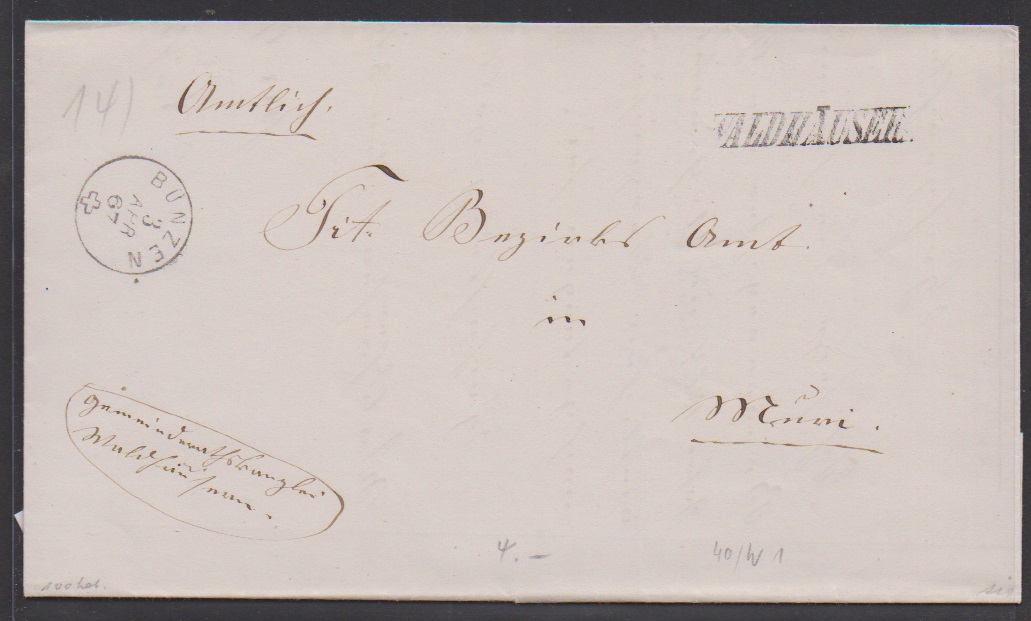 14)
Amtlich.
WALDHÄUSER.
BÜNZEN
3
APR
67
Tit. Bezirks Amt.
in
Muri.
Gemeinderathskanzlei
Waldhäusern.
4.–
40/W 1